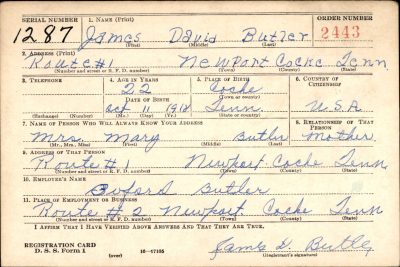 SERIAL NUMBER 1. NAME (Print) ORDER NUMBER
1287 James David Butler 2443
(First) (Middle) (Last)
2. ADDRESS (Print)
Route #1 Newport Cocke Tenn
(Number and street or R. F. D. number) (Town) (County) (State)
3. TELEPHONE 4. AGE IN YEARS 5. PLACE OF BIRTH 6. COUNTRY OF CITIZENSHIP
22 Cocke
DATE OF BIRTH (Town or county)
11 1918 Tenn. U.S.A
(Exchange) (Number) (Mo.) (Day) (Yr.) (State or country)
7. NAME OF PERSON WHO WILL ALWAYS KNOW YOUR ADDRESS 8. RELATIONSHIP OF THAT PERSON
Mrs. Mary Butler Mother
(Mr., Mrs., Miss) (First) (Middle) (Last)
9. ADDRESS OF THAT PERSON
Route #1 Newport Cocke Tenn
(Number and street or R. F. D. number) (Town) (County) (State)
10. EMPLOYER'S NAME
Buford Butler
11. PLACE OF EMPLOYMENT OR BUSINESS
Route #2 Newport Cocke Tenn
(Number and street or R. F. D. number) (Town) (County) (State)
I AFFIRM THAT I HAVE VERIFIED ABOVE ANSWERS AND THAT THEY ARE TRUE.
REGISTRATION CARD James D. Butler
D. S. S. Form 1 (over) 16—17105 (Registrant's signature)